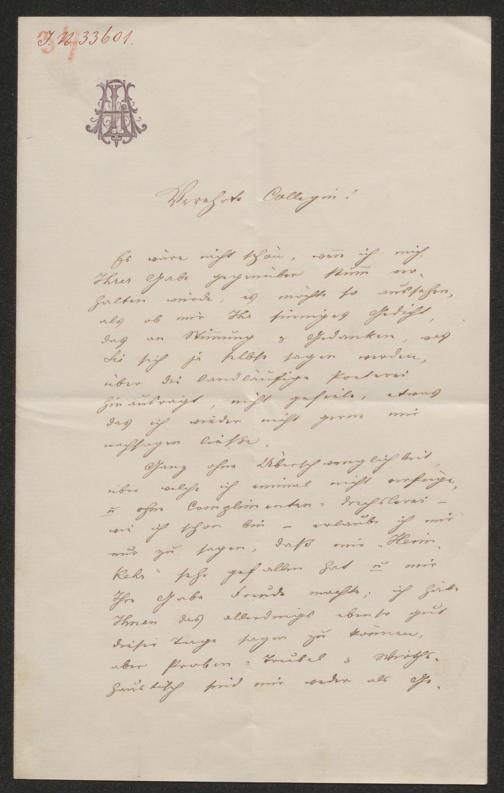 J. N. 33601.
34
Verehrte Collegin!
Es wäre nicht schön, wenn ich mich
Ihrer Gabe gegenüber stumm ver-
halten würde, es möchte so aussehen,
als ob mir Ihr sinniges Gedicht,
das an Stimmung & Gedanken, was
Sie sich ja selbst sagen werden,
über die landläufige Poeterei
hinausragt, nicht gefiele, etwas
das ich wieder nicht gerne mir
nachsagen ließe.
Ganz ohne Überschwenglichkeit,
über welche ich einmal nicht verfüge,
u ohne Complimenten-Drechslerei –
wie ich schon bin – erlaube ich mir
nur zu sagen, daß mir „Heim-
kehr" sehr gefallen hat u mir
Ihre Gabe Freude machte; ich hätte
Ihnen das allerdings ebenso gut
dieser Tage sagen zu können,
aber Proben-Trubel & Wirths-
haustisch sind mir weder als Ge-